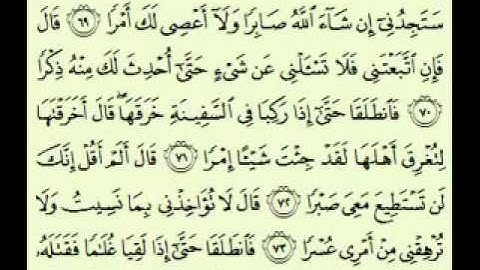 سَتَجِدُنِىٓ إِن شَآءَ ٱللَّهُ صَابِرًا وَلَآ أَعْصِى لَكَ أَمْرًا ٦٩ قَالَ
فَإِنِ ٱتَّبَعْتَنِى فَلَا تَسْـَٔلْنِى عَن شَىْءٍ حَتَّىٰٓ أُحْدِثَ لَكَ مِنْهُ ذِكْرًا
٧٠ فَٱنطَلَقَا حَتَّىٰٓ إِذَا رَكِبَا فِى ٱلسَّفِينَةِ خَرَقَهَا ۖ قَالَ أَخَرَقْتَهَا
لِتُغْرِقَ أَهْلَهَا لَقَدْ جِئْتَ شَيْـًٔا إِمْرًا ٧١ قَالَ أَلَمْ أَقُلْ إِنَّكَ
لَن تَسْتَطِيعَ مَعِىَ صَبْرًا ٧٢ قَالَ لَا تُؤَاخِذْنِى بِمَا نَسِيتُ وَلَا
تُرْهِقْنِى مِنْ أَمْرِى عُسْرًا ٧٣ فَٱنطَلَقَا حَتَّىٰٓ إِذَا لَقِيَا غُلَٰمًا فَقَتَلَهُۥ